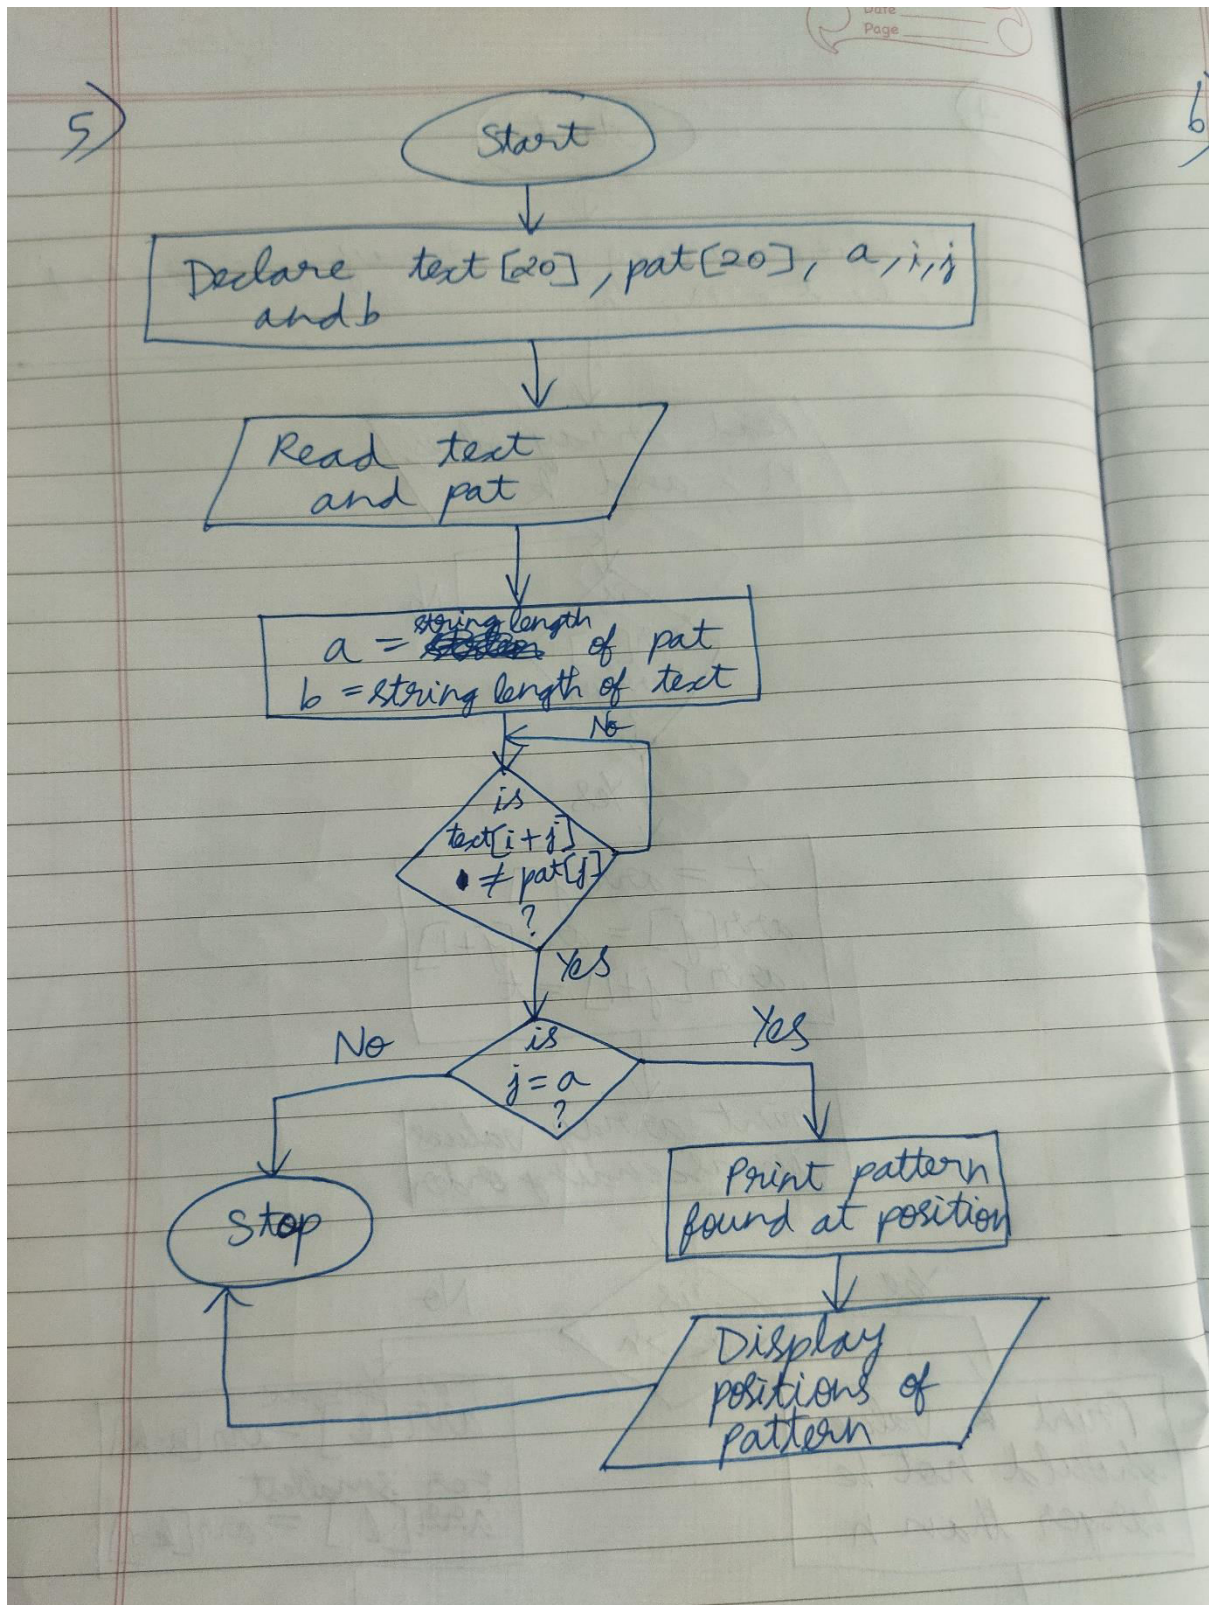 Date
Page
5)
6)
Start
Declare text[20], pat[20], a, i, j
and b
Read text
and pat
string length
a = of pat
b = string length of text
No
is
text[i+j]
≠ pat[j]
?
Yes
No
is
j = a
?
Yes
Print pattern
found at position
Stop
Display
positions of
pattern